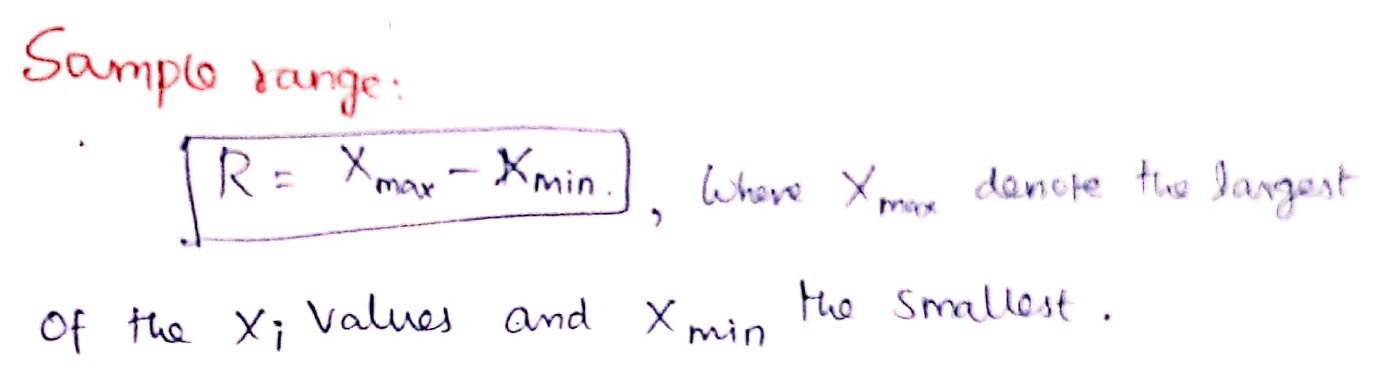 Sample range:
R = Xmax - Xmin. , Where Xmax denote the largest
of the Xi values and Xmin the smallest.